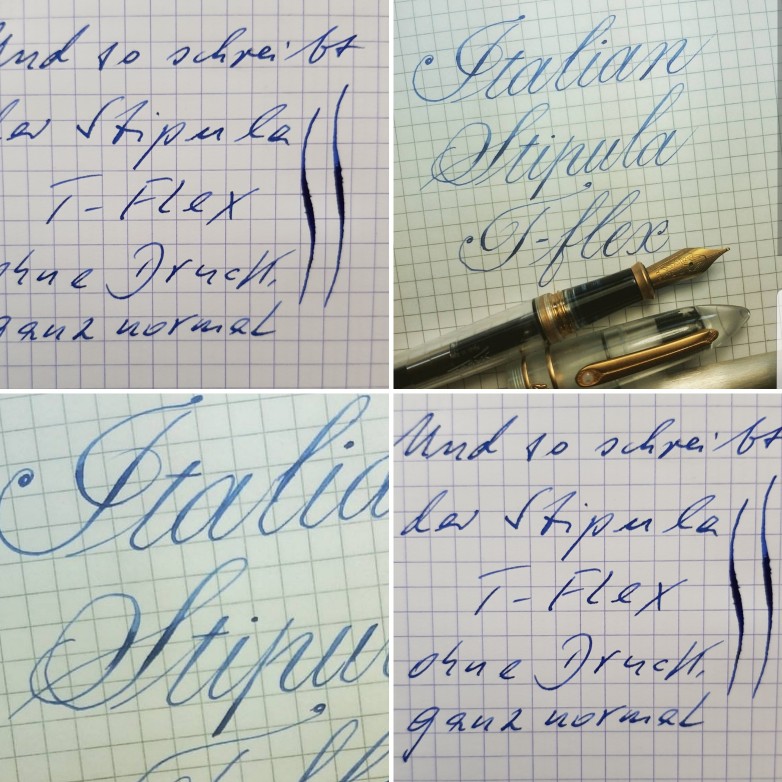 Und so schreibt
der Stipula
T-Flex
ohne Druck,
ganz normal
Italian
Stipula
T-flex
Italia
Stipu
T-fl
Und so schreibt
der Stipula
T-Flex
ohne Druck,
ganz normal